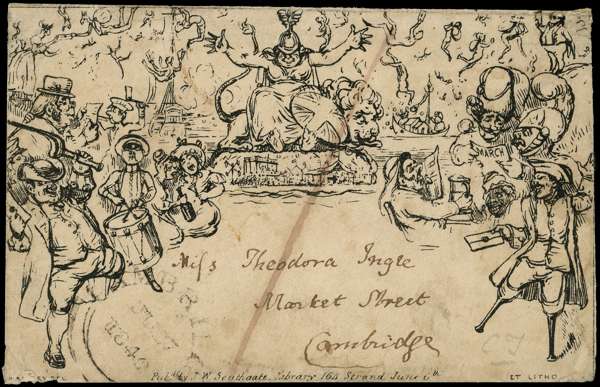 MARCH
Miss Theodora Ingle
Market Street
Cambridge
1840
CJ
Pub. by W. Southgate, Library 164 Strand June
LITHO